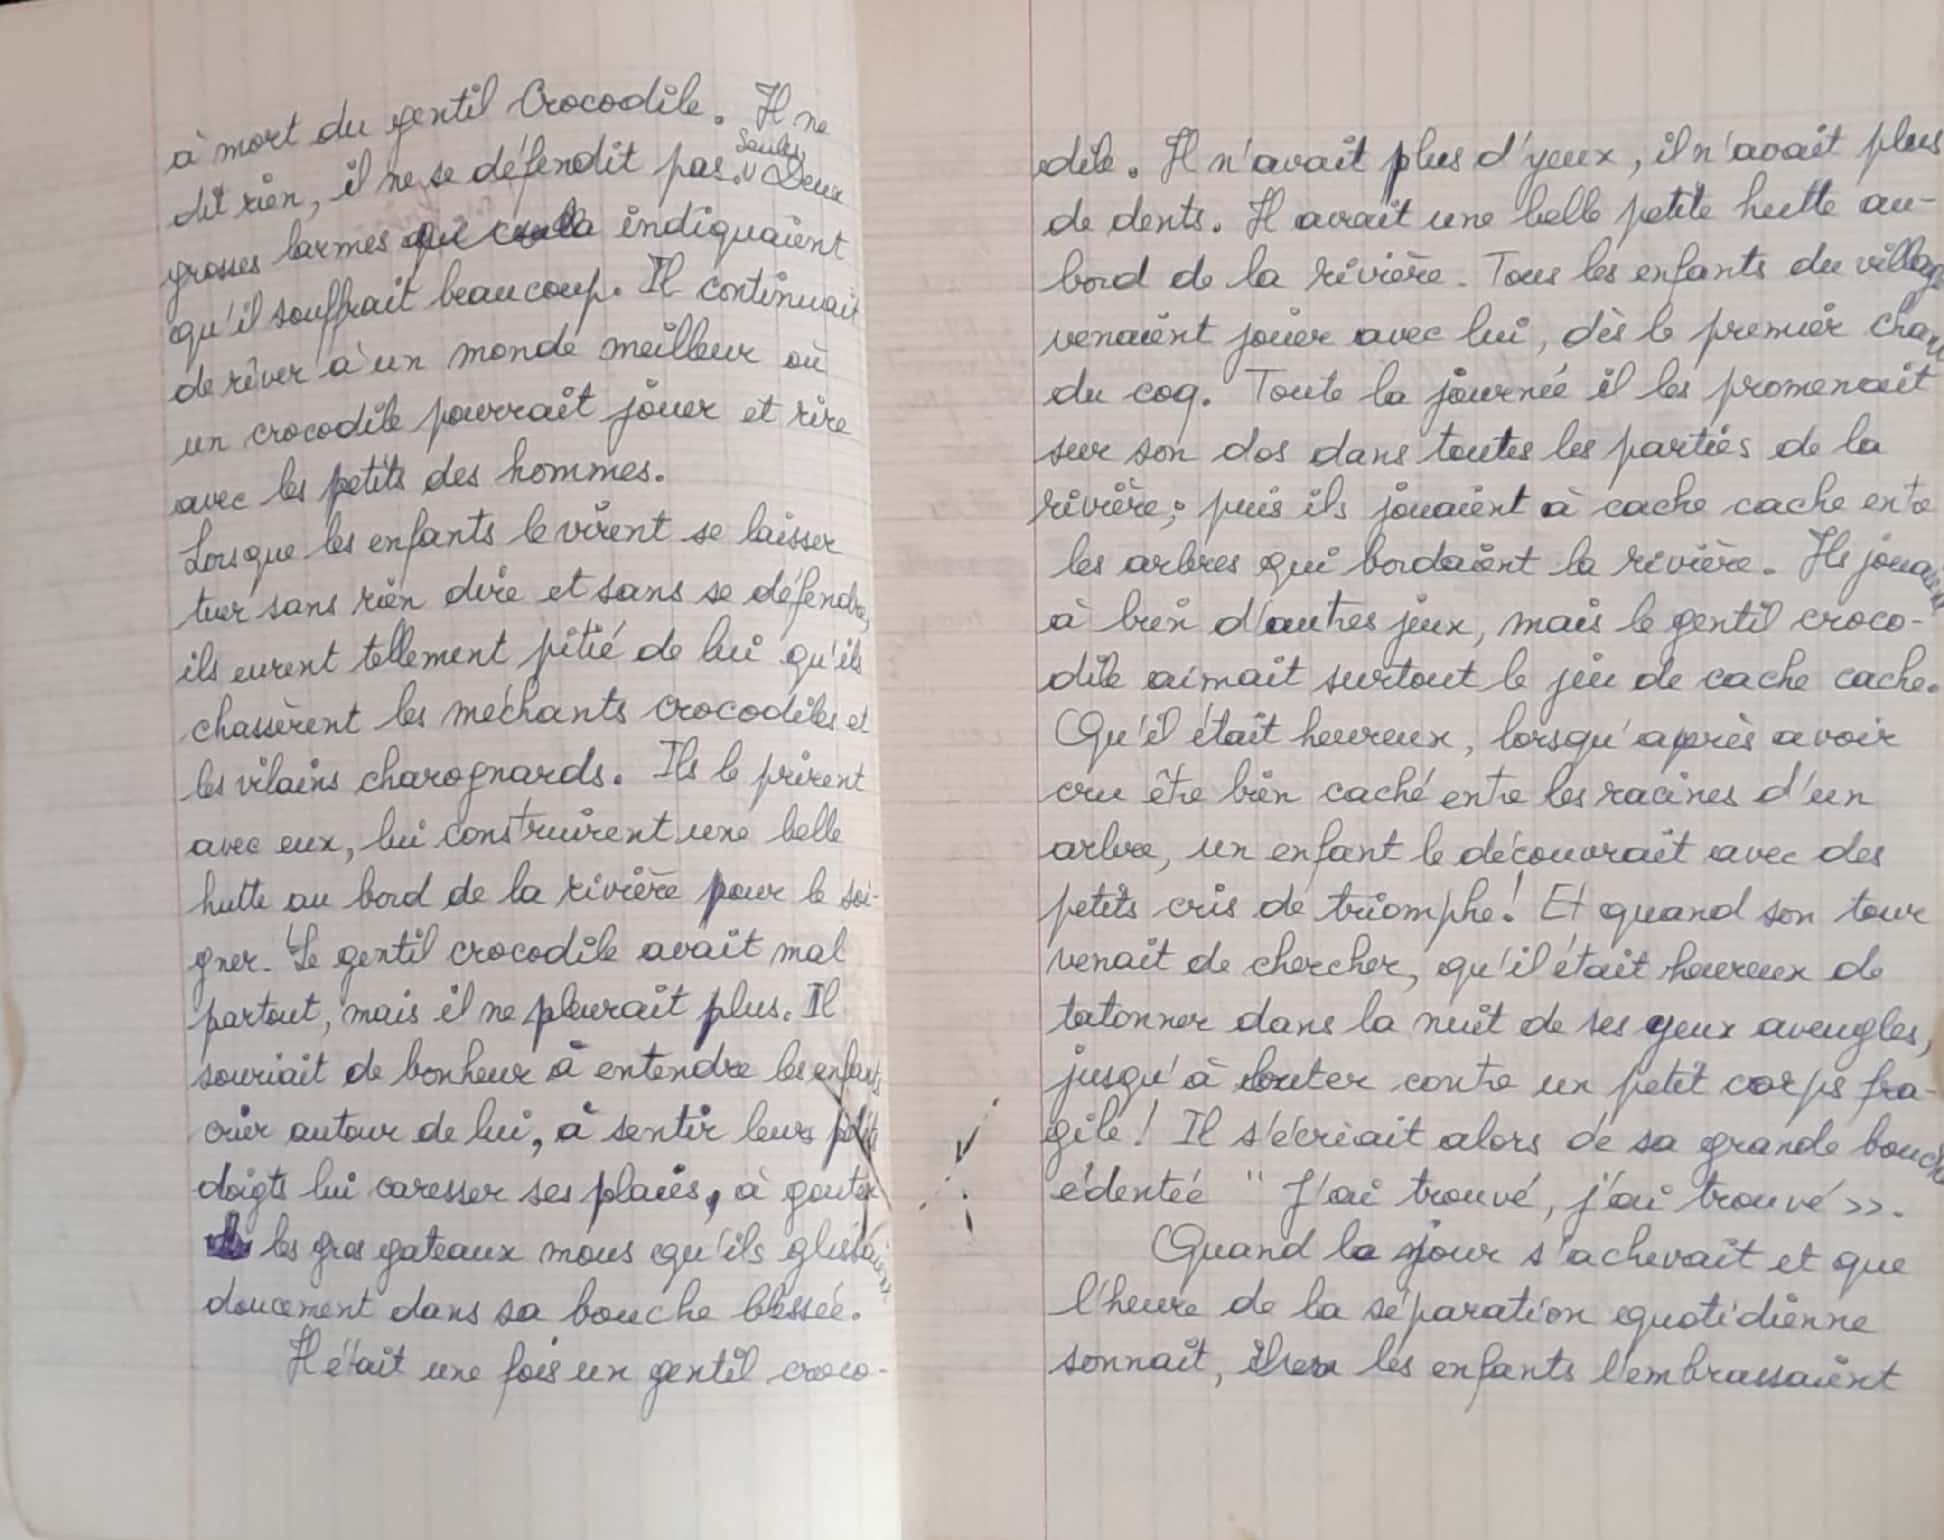 à mort du gentil Crocodile. Il ne
dit rien, il ne se défendit pas. Seules Deux
grosses larmes indiquaient
qu'il souffrait beaucoup. Il continuait
de rêver à un monde meilleur où
un crocodile pourrait jouer et rire
avec les petits des hommes.
Lorsque les enfants le virent se laisser
tuer sans rien dire et sans se défendre,
ils eurent tellement pitié de lui qu'ils
chassèrent les méchants crocodiles et
les vilains charognards. Ils le prirent
avec eux, lui construirent une belle
hutte au bord de la rivière pour le soi-
gner. Le gentil crocodile avait mal
partout, mais il ne pleurait plus. Il
souriait de bonheur à entendre les enfants
crier autour de lui, à sentir leurs petits
doigts lui caresser ses plaies, à gouter
les gros gateaux mous qu'ils glissaient
doucement dans sa bouche blessée.
Il était une fois un gentil croco-
dile. Il n'avait plus d'yeux, il n'avait plus
de dents. Il avait une belle petite hutte au-
bord de la rivière. Tous les enfants du village
venaient jouer avec lui, dès le premier chant
du coq. Toute la journée il les promenait
sur son dos dans toutes les parties de la
rivière; puis ils jouaient à cache cache entre
les arbres qui bordaient la rivière. Ils jouaient
à bien d'autres jeux, mais le gentil croco-
dile aimait surtout le jeu de cache cache.
Qu'il était heureux, lorsqu'après avoir
cru être bien caché entre les racines d'un
arbre, un enfant le découvrait avec des
petits cris de triomphe! Et quand son tour
venait de chercher, qu'il était heureux de
tatonner dans la nuit de ses yeux aveugles,
jusqu'à buter contre un petit corps fra-
gile! Il s'écriait alors de sa grande bouche
édentée "J'ai trouvé, j'ai trouvé >>.
Quand le jour s'achevait et que
l'heure de la séparation quotidienne
sonnait, les enfants l'embrassaient